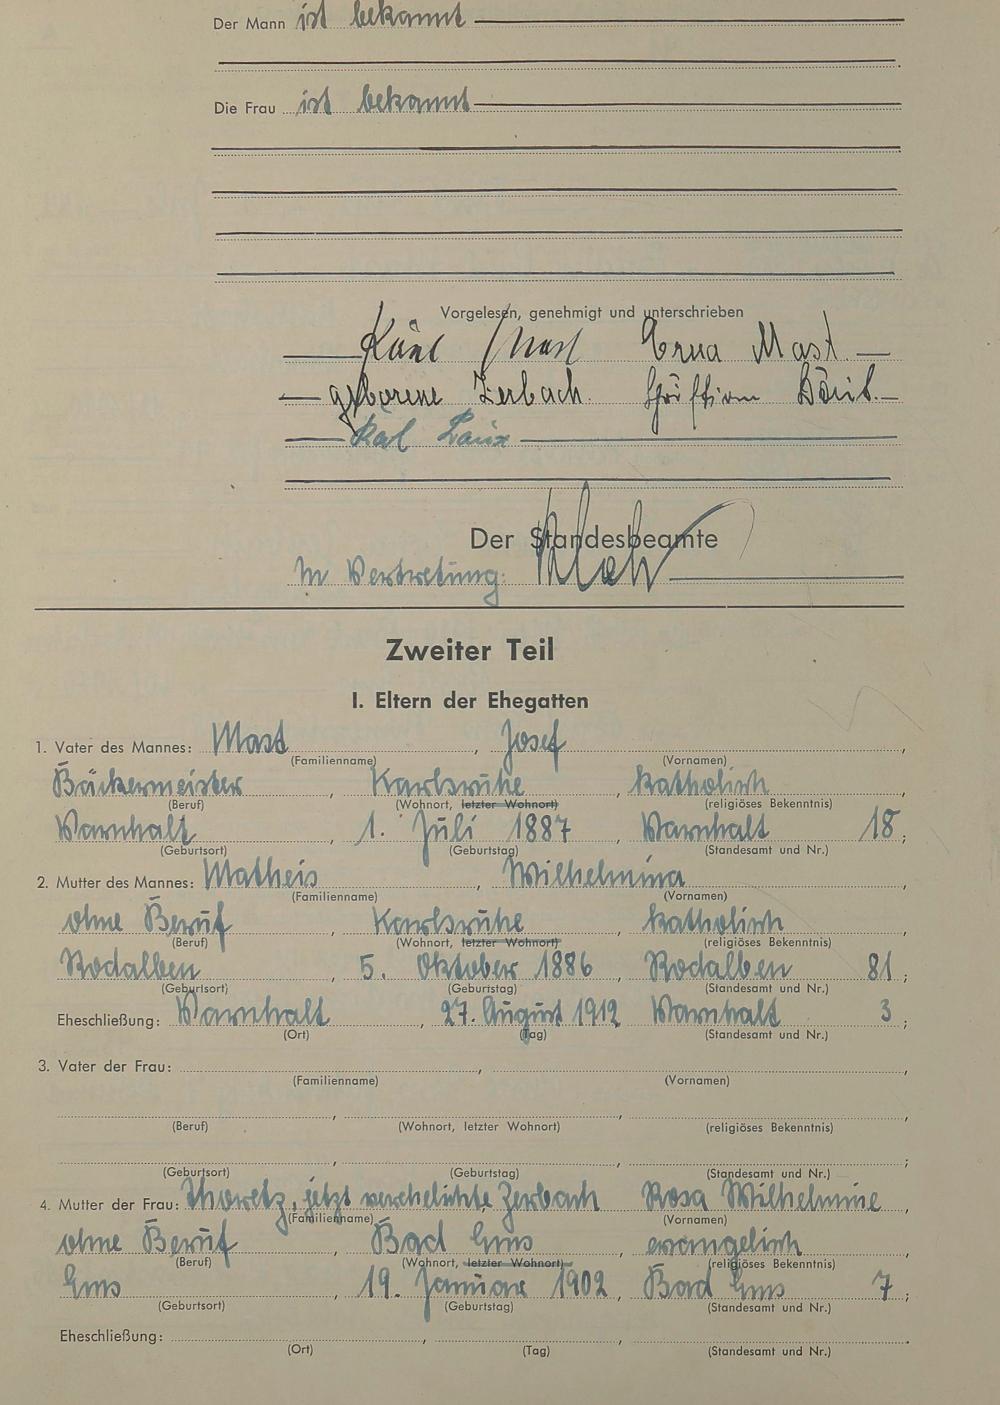 Der Mann ist bekannt
Die Frau ist bekannt
Vorgelesen, genehmigt und unterschrieben
Karl Mast Erna Mast
geborene Zerbach.
Karl
Der Standesbeamte
In Vertretung:
Zweiter Teil
I. Eltern der Ehegatten
1. Vater des Mannes: Mast, Josef,
(Familienname) (Vornamen)
Bäckermeister, Karlsruhe, katholisch
(Beruf) (Wohnort, letzter Wohnort) (religiöses Bekenntnis)
Varnhalt, 1. Juli 1887, Varnhalt 18;
(Geburtsort) (Geburtstag) (Standesamt und Nr.)
2. Mutter des Mannes: Matheis, Wilhelmina,
(Familienname) (Vornamen)
ohne Beruf, Karlsruhe, katholisch,
(Beruf) (Wohnort, letzter Wohnort) (religiöses Bekenntnis)
Rodalben, 5. Oktober 1886, Rodalben 81;
(Geburtsort) (Geburtstag) (Standesamt und Nr.)
Eheschließung: Varnhalt, 27. August 1912 Varnhalt 3;
(Ort) (Tag) (Standesamt und Nr.)
3. Vater der Frau: , ,
(Familienname) (Vornamen)
, , ,
(Beruf) (Wohnort, letzter Wohnort) (religiöses Bekenntnis)
, , ;
(Geburtsort) (Geburtstag) (Standesamt und Nr.)
4. Mutter der Frau: jetzt verehelichte Zerbach Rosa Wilhelmine,
(Familienname) (Vornamen)
ohne Beruf, Bad Ems, evangelisch,
(Beruf) (Wohnort, letzter Wohnort) (religiöses Bekenntnis)
Ems, 19. Januar 1902, Bad Ems 7;
(Geburtsort) (Geburtstag) (Standesamt und Nr.)
Eheschließung: , , .
(Ort) (Tag) (Standesamt und Nr.)